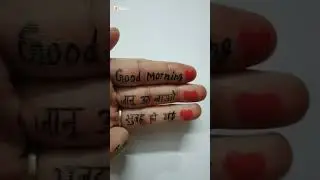 Good Morning
जानू उठ जाओ
सुबह हो गई